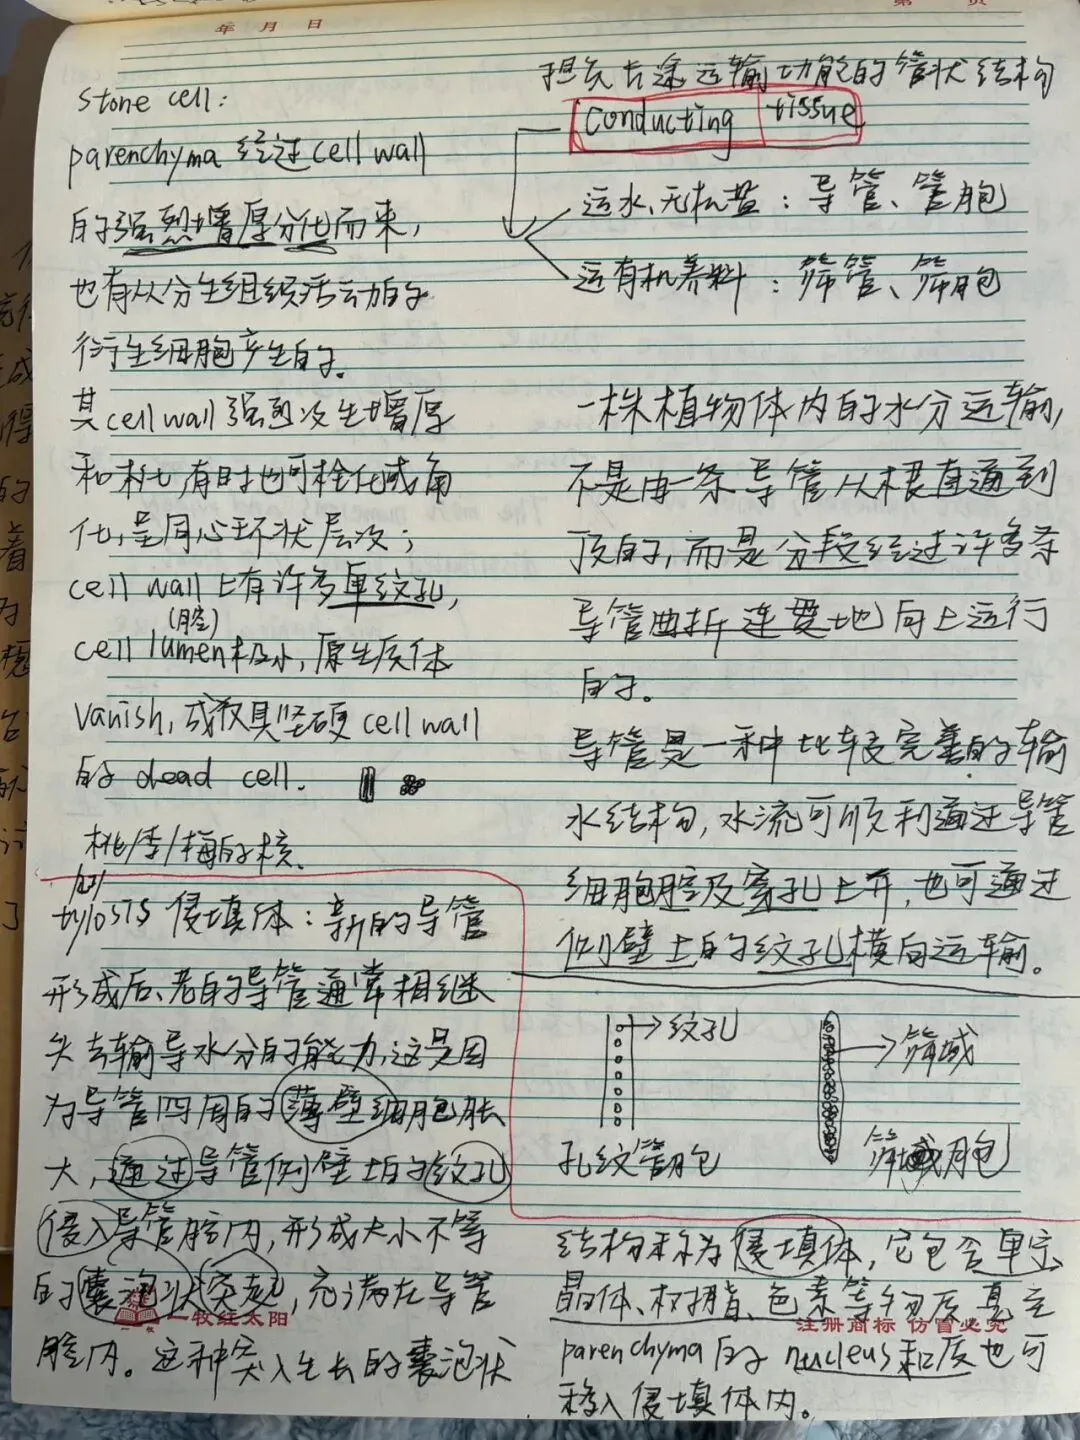 年 月 日
第 页
Stone cell:
parenchyma 经过cell wall
的强烈增厚分化而来,
也有从分生组织活动的
衍生细胞产生的。
其cell wall强烈次生增厚
和木化,有时也可栓化或角
化,呈同心环状层次;
cell wall上有许多单纹孔,
(腔)
cell lumen极小,原生质体
vanish,成仅具坚硬cell wall
的dead cell.
桃/李/梅的核.
tylosis 侵填体:新的导管
形成后、老的导管通常相继
失去输导水分的能力,这是因
为导管四周的薄壁细胞胀
大,通过导管侧壁上的纹孔
侵入导管腔内,形成大小不等
的囊泡状突起,充满在导管
腔内。这种突入生长的囊泡状
担负长途运输功能的管状结构
conducting tissue
运水、无机盐:导管、管胞
运有机养料:筛管、筛胞
一株植物体内的水分运输,
不是由一条导管从根直通到
顶的,而是分段经过许多条
导管曲折连贯地向上运行
的。
导管是一种比较完善的输
水结构,水流可顺利通过导管
细胞腔及穿孔上升,也可通过
侧壁上的纹孔横向运输。
纹孔
筛域
孔纹管胞
筛胞
结构称为侵填体,它包含单宁、
晶体、树脂、色素等物质,甚至
parenchyma的nucleus和质也可
移入侵填体内。
一牧红太阳
注册商标 仿冒必究